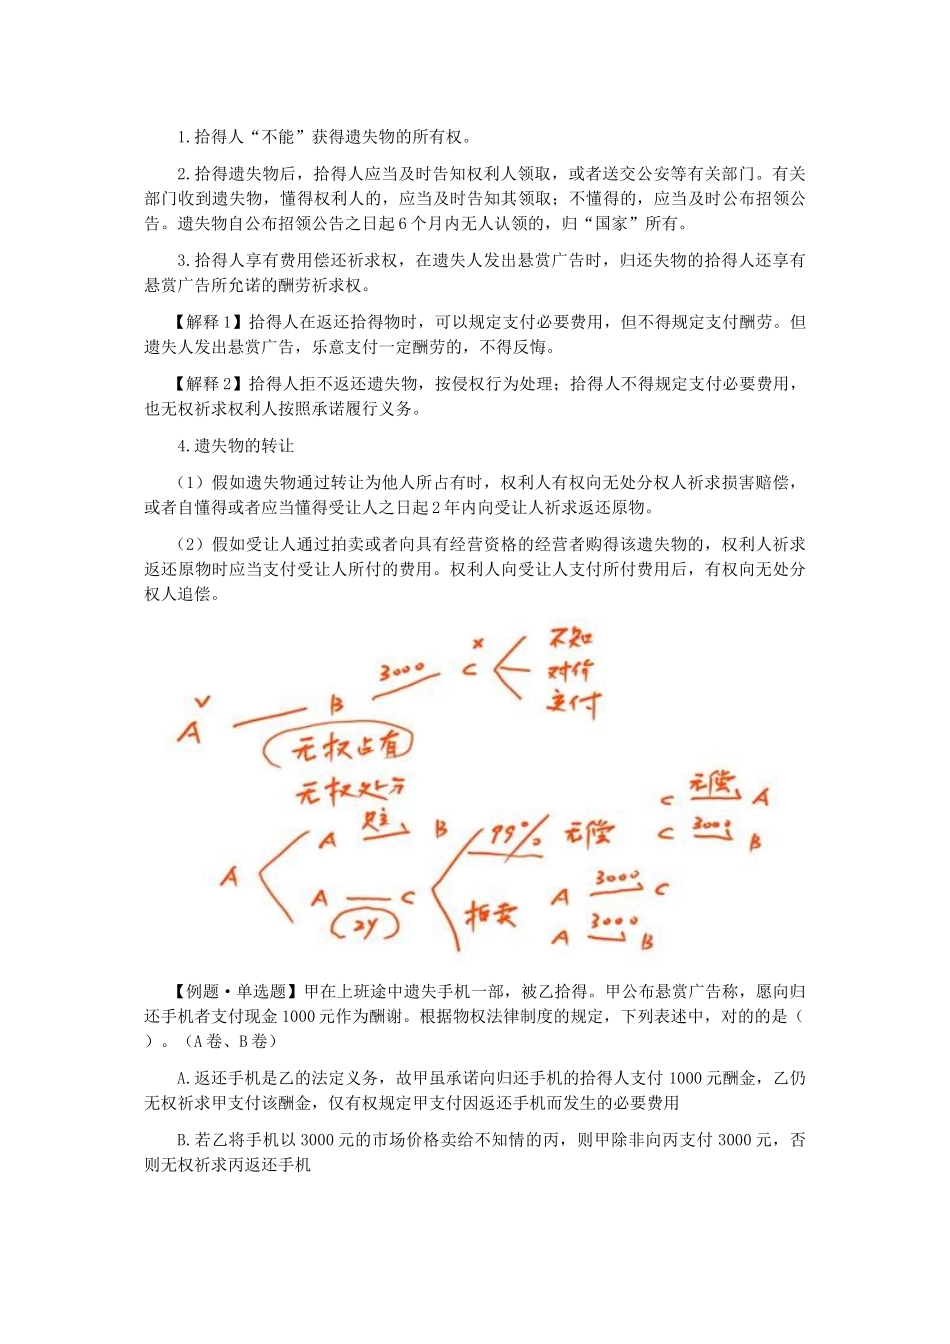 1.拾得人“不能”获得遗失物的所有权。
2.拾得遗失物后，拾得人应当及时告知权利人领取，或者送交公安等有关部门。有关
部门收到遗失物，懂得权利人的，应当及时告知其领取；不懂得的，应当及时公布招领公
告。遗失物自公布招领公告之日起 6 个月内无人认领的，归“国家”所有。
3.拾得人享有费用偿还祈求权，在遗失人发出悬赏广告时，归还失物的拾得人还享有
悬赏广告所允诺的酬劳祈求权。
【解释 1】拾得人在返还拾得物时，可以规定支付必要费用，但不得规定支付酬劳。但
遗失人发出悬赏广告，乐意支付一定酬劳的，不得反悔。
【解释 2】拾得人拒不返还遗失物，按侵权行为处理；拾得人不得规定支付必要费用，
也无权祈求权利人按照承诺履行义务。
4.遗失物的转让
（1）假如遗失物通过转让为他人所占有时，权利人有权向无处分权人祈求损害赔偿，
或者自懂得或者应当懂得受让人之日起 2 年内向受让人祈求返还原物。
（2）假如受让人通过拍卖或者向具有经营资格的经营者购得该遗失物的，权利人祈求
返还原物时应当支付受让人所付的费用。权利人向受让人支付所付费用后，有权向无处分
权人追偿。
不知
3000 C × 对价
A B 交付
无权占有
无权处分
C 无偿 A
A B 99% 无偿 C 3000 B
A
A C A 3000 C
2y 拍卖 A 3000 B
【例题·单选题】甲在上班途中遗失手机一部，被乙拾得。甲公布悬赏广告称，愿向归
还手机者支付现金 1000 元作为酬谢。根据物权法律制度的规定，下列表述中，对的的是（
）。（A 卷、B 卷）
A.返还手机是乙的法定义务，故甲虽承诺向归还手机的拾得人支付 1000 元酬金，乙仍
无权祈求甲支付该酬金，仅有权规定甲支付因返还手机而发生的必要费用
B.若乙将手机以 3000 元的市场价格卖给不知情的丙，则甲除非向丙支付 3000 元，否
则无权祈求丙返还手机